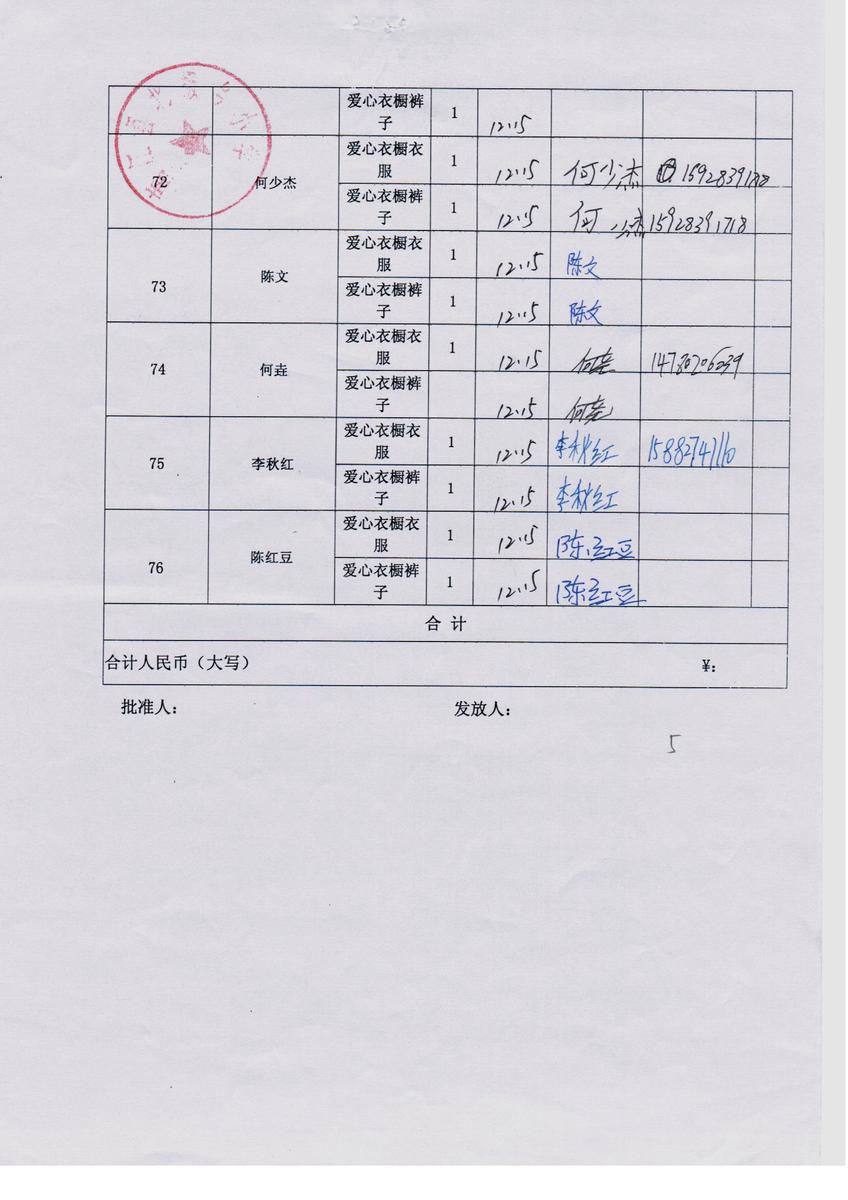 爱心衣橱裤
子 1 12.15
72 何少杰 爱心衣橱衣
服 1 12.15 何少杰
爱心衣橱裤
子 1 12.15 何少杰 15928391718
73 陈文 爱心衣橱衣
服 1 12.15 陈文
爱心衣橱裤
子 1 12.15 陈文
74 何垚 爱心衣橱衣
服 1 12.15 何垚
爱心衣橱裤
子 12.15 何垚
75 李秋红 爱心衣橱衣
服 1 12.15 李秋红
爱心衣橱裤
子 1 12.15 李秋红
76 陈红豆 爱心衣橱衣
服 1 12.15 陈红豆
爱心衣橱裤
子 1 12.15 陈红豆
合 计
合计人民币（大写） ¥：
批准人： 发放人：
5